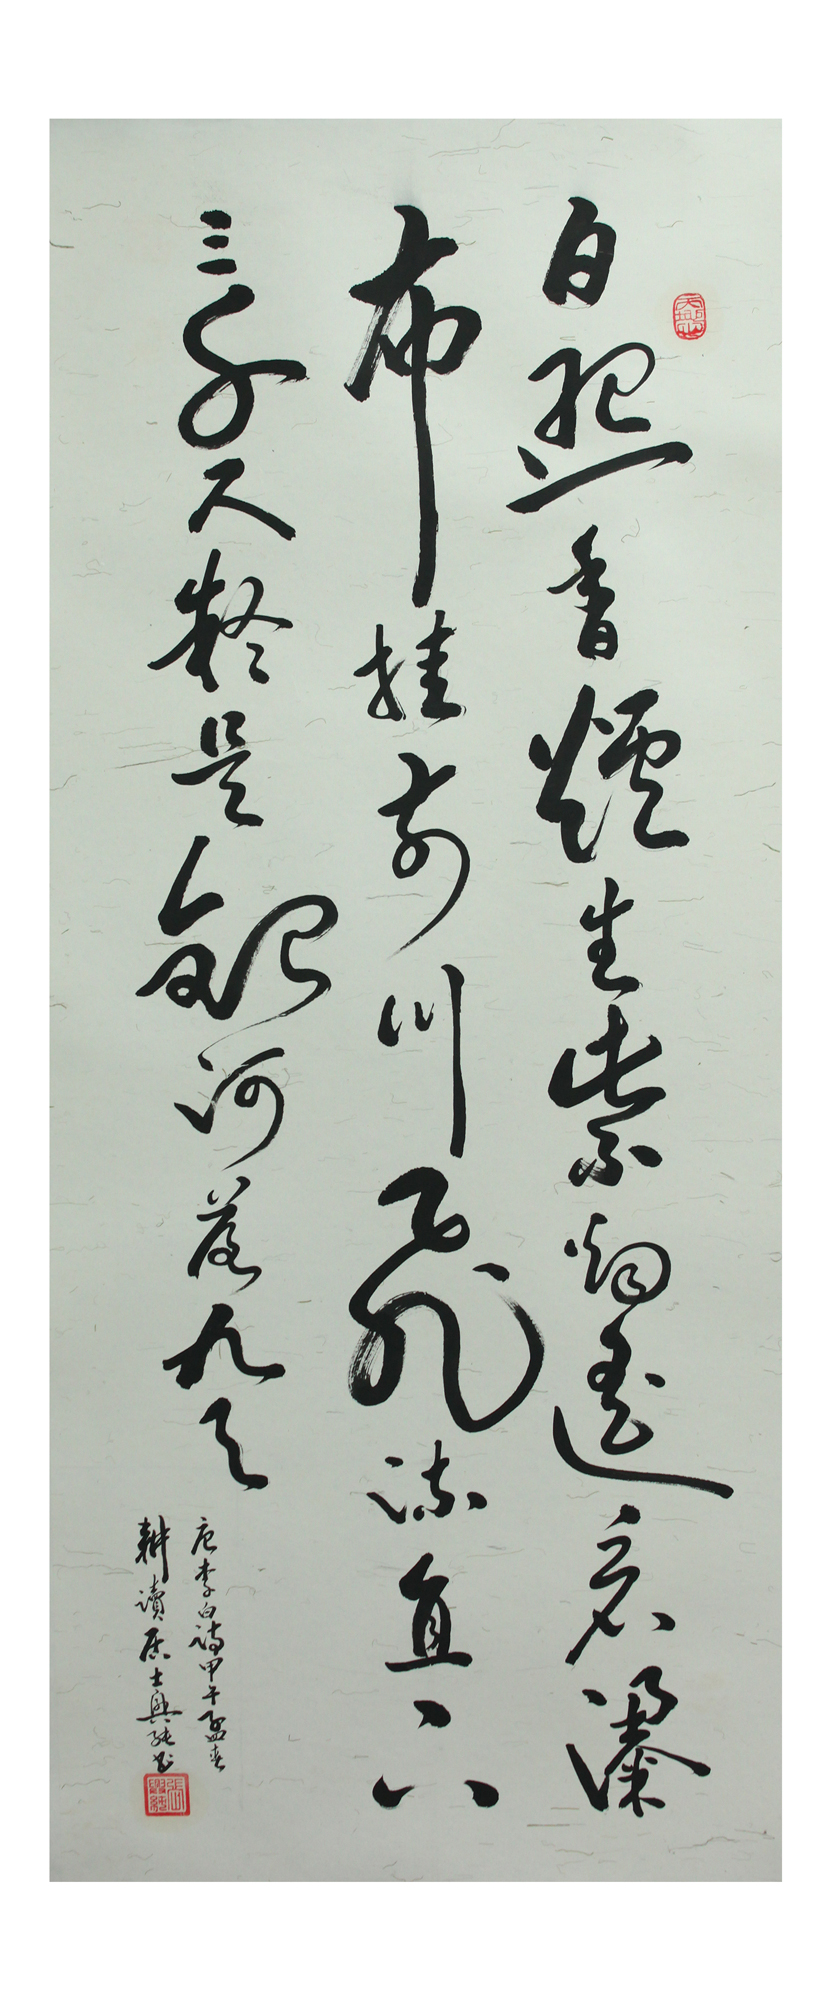 日照香爐生紫烟遥看瀑
布挂前川飛流直下
三千尺疑是銀河落九天
唐李白詩甲午孟春
耕讀居士興書